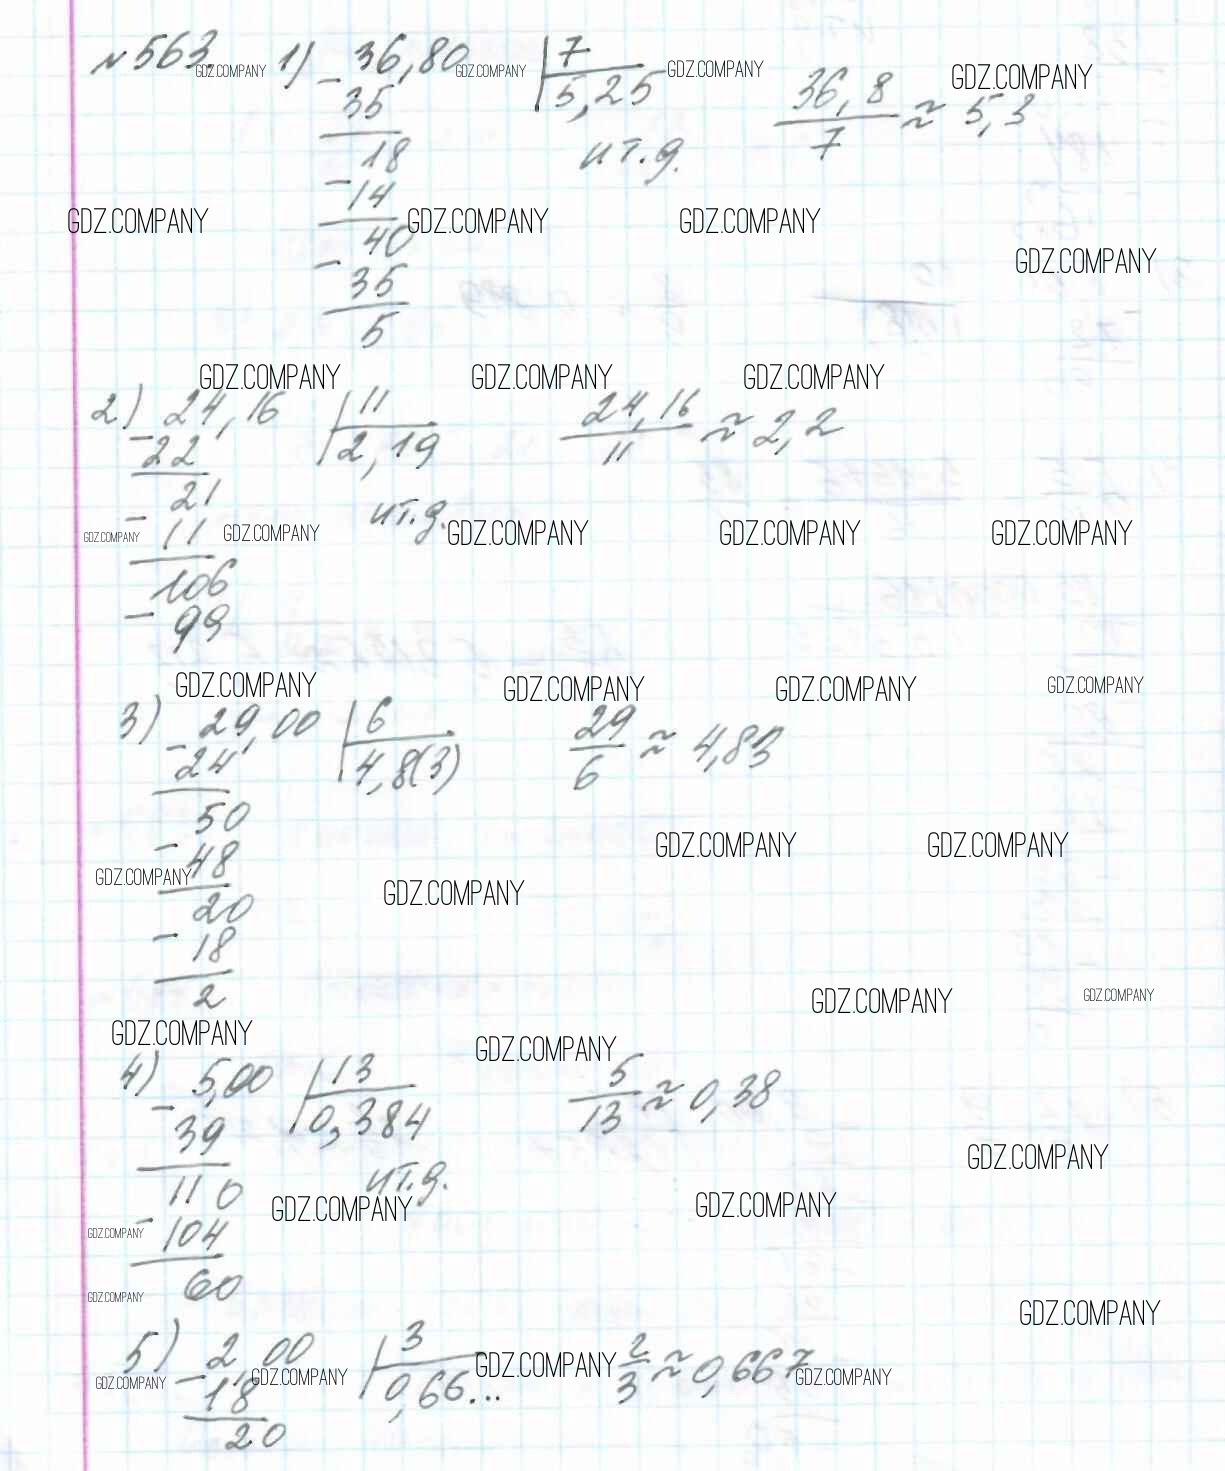 №563. 1) 36,80 | 7    36,8/7 ≈ 5,3
GDZ.COMPANY GDZ.COMPANY GDZ.COMPANY GDZ.COMPANY
- 35    5,25
18    и т.д.
- 14
GDZ.COMPANY GDZ.COMPANY GDZ.COMPANY
40
GDZ.COMPANY
- 35
5
GDZ.COMPANY GDZ.COMPANY GDZ.COMPANY
2) 24,16 | 11    24,16/11 ≈ 2,2
- 22    2,19
21    и т.д.
- 11
GDZ.COMPANY GDZ.COMPANY GDZ.COMPANY GDZ.COMPANY GDZ.COMPANY
106
- 99
GDZ.COMPANY GDZ.COMPANY GDZ.COMPANY GDZ.COMPANY
3) 29,00 | 6    29/6 ≈ 4,83
- 24    4,8(3)
50
GDZ.COMPANY GDZ.COMPANY
- 48
GDZ.COMPANY GDZ.COMPANY
20
- 18
2
GDZ.COMPANY GDZ.COMPANY
GDZ.COMPANY GDZ.COMPANY
4) 5,00 | 13    5/13 ≈ 0,38
- 39    0,384
GDZ.COMPANY
110    и т.д.
GDZ.COMPANY GDZ.COMPANY
- 104
GDZ.COMPANY
60
GDZ.COMPANY GDZ.COMPANY
5) 2,00 | 3    2/3 ≈ 0,667
GDZ.COMPANY GDZ.COMPANY GDZ.COMPANY GDZ.COMPANY
- 18    0,66...
20